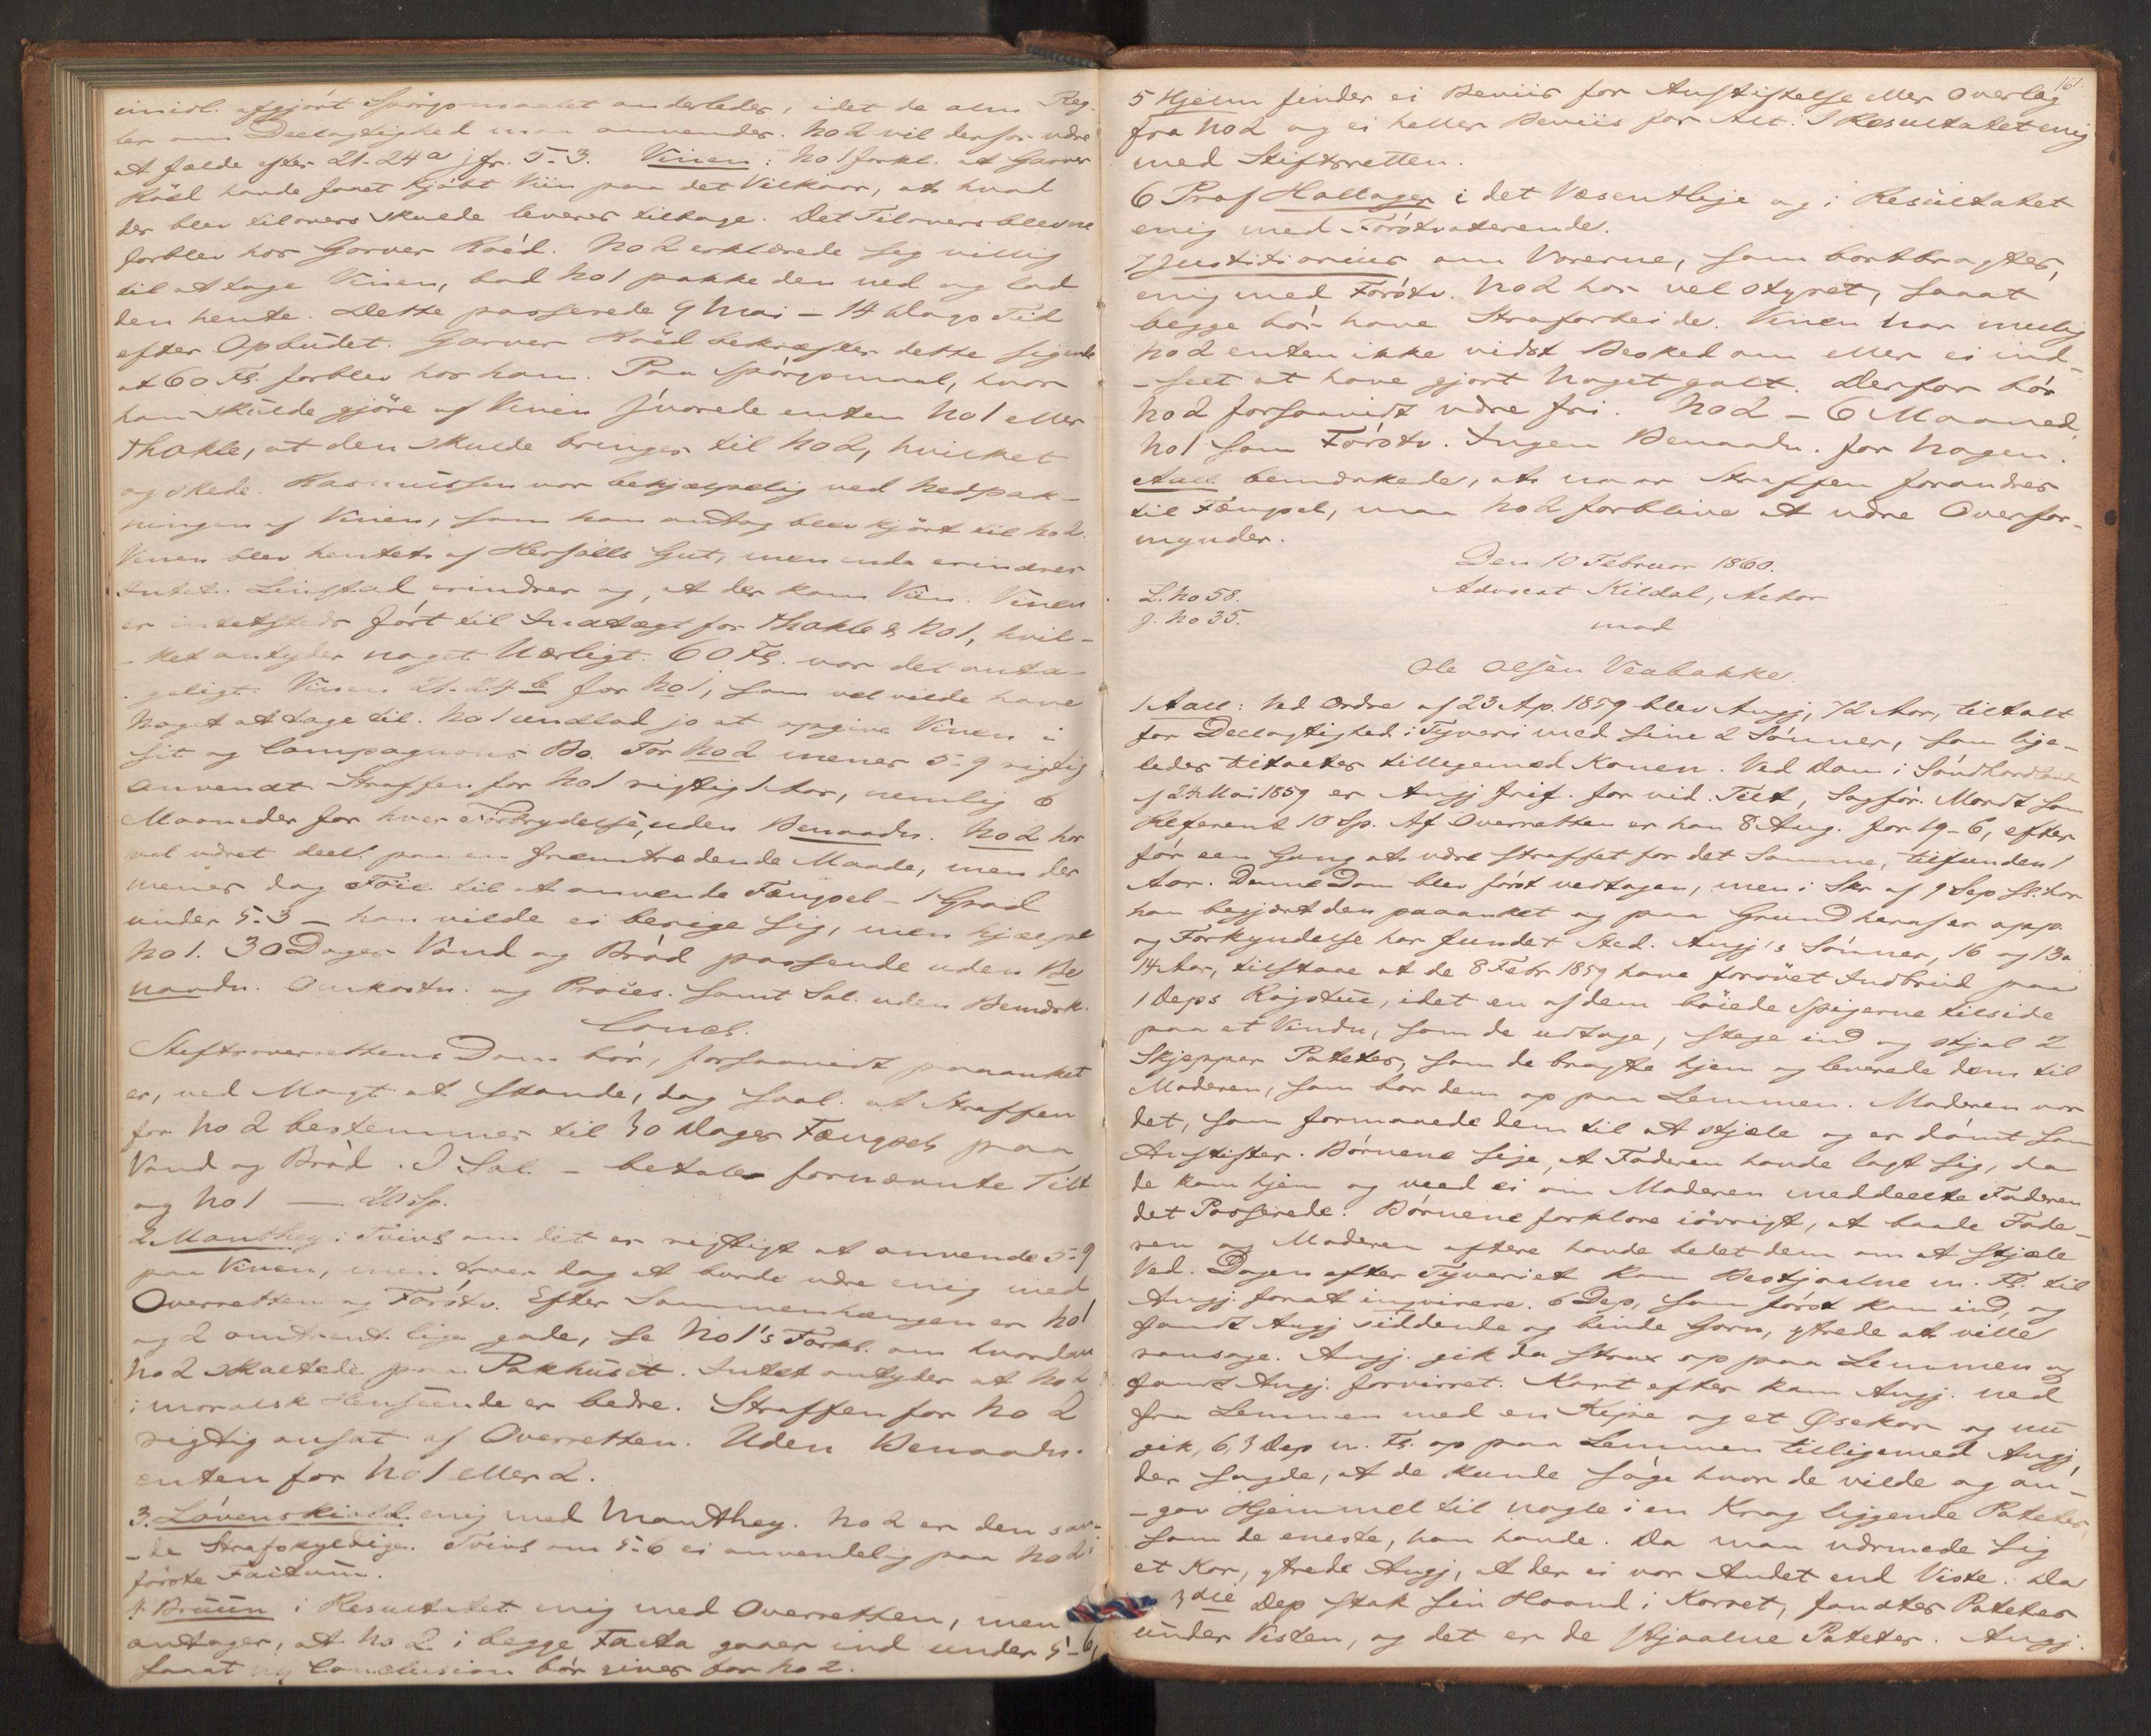 imidl. afgjort Spörgsmaalet anderledes, idet de alm Reg-
ler om Deelagtighed maa anvendes. No 2 vil derfor være
at fælde efter 21-24 a jfr. 5-3. Vinen: No 1 forkl. at Garver
Röed havde faaet kjöbt Viin paa det Vilkaar, at hvad
der blev tilovers skulde leveres tilbage. Det Tiloversblevne
forblev hos Garver Röed. No 2 erklærede sig villig
til at tage Vinen, bad No 1 pakke den ned og lod
den hente. Dette passerede 9 Mai - 14 Dags Tid
efter Opbudet. Garver Röed bekræfter dette sigende
at 60 Fl. forblev hos ham. Paa Spörgsmaal, hvor
han skulde gjöre af Vinen svarede enten No 1 eller
Thakle, at den skulde bringes til No 2, hvilket
og skede. Rasmussen var behjælpelig ved Nedpak-
ningen af Vinen, som han antog blev kjört til No 2.
Vinen blev hentet af Herfalls Gut, men enda erindrer
Intet. Linstad erindrer og, at der kom Viin. Vinen
er intetsteds fört til Indtægt for Thakle & No 1, hvil-
-ket antyder noget Uærligt. 60 Fl. var det anta-
geligt. Vinen 21-24 b for No 1, som vel vilde have
Noget at tage til. No 1 undlod jo at opgive Vinen i
sit og Compagnons Bo. For No 2 mener 5-9 rigtig
anvendt Straffen for No 1 rigtig 1 Aar, nemlig 6
Maaneder for hver Forbrydelse, uden Benaadn. No 2 har
vel været deel. paa en fremtrædende Maade, men der
menes dog Föie til at anvende Fængsel - 1 Grad
under 5-3 - han vilde ei berige sig, men hjælpe
No 1. 30 Dages Vand og Bröd passende uden Be
naadn. Omkostn. og Proces. samt Sal. uden Bemærk.
Concl.
Stiftsoverrettens Dom bör, forsaavidt paaanket
er, ved Magt at stande, dog saal. at Straffen
for No 2 bestemmes til 30 Dages Fængsel paa
Vand og Bröd. I Sal. - betaler fornævnte Tilt
og No 1 — 20 Sp.
2. Manthey: Tvivl om det er rigtigt at anvende 5-9
paa Vinen, men troer dog at burde være enig med
Overretten og Förstv. Efter Sammenhængen er No 1
og 2 omtrent lige gode, se No 1's Forkl. om hvordan
No 2 skaltede paa Pakhuset. Intet antyder at No 2
i moralsk Henseende er bedre. Straffen for No 2
rigtig ansat af Overretten. Uden Benaadn.
enten for No 1 eller 2.
3. Lövenskiold enig med Manthey. No 2 er den
-de Strafskyldige. Tvivl om 5-6 ei anvendelig paa No 2 i
förste Factum.
4. Bruun i Resultatet enig med Overretten, men
antager, at No 2 i begge Facta gaaer ind under 5-6,
saaat ny Conclusion bör gives for No 2.
161.
5 Hjelm finder ei Beviis for Anstiftelse eller Overlæg
fra No 2 og ei heller Beviis for Alt. I Resultatet enig
med Stiftsretten.
6 Prof Hallager i det Væsentlige og i Resultatet
enig med Förstvoterende.
7 Justitiarius om Varerne, som bortbragtes,
enig med Förstv. No 2 har vel styret, saaat
begge bör have Strafarbeide. Vinen har muelig
No 2 enten ikke vidst Besked om eller ei ind-
-seet at have gjort Noget galt. Derfor bör
No 2 forsaavidt være fri. No 2 - 6 Maaned
No 1 som Förstv. Ingen Benaadn. for Nogen.
Aall bemærkede, at naar Straffen forandres
til Fængsel, maa No 2 forblive at være Overfor-
mynder.
Den 10 Februar 1860.
L. No 58.
Advocat Kildal, Actor
J. No 35.
mod
Ole Olsen Veabakke.
1 Aall: Ved Ordre af 23 Ap. 1859 blev Angj, 72 Aar, tiltalt
for Deelagtighed i Tyveri med sine 2 Sönner, som lige-
ledes tiltaltes tilligemed Konen. Ved Dom i Söndhordland
af 24 Mai 1859 er Angj frif. for vid. Tilt, Sagför. Mordt som
Referent 10 Sp. Af Overretten er han 8 Aug. for 19-6, efter
för een Gang at være straffet for det Samme, tilfunden 1
Aar. Denne Dom blev först vedtagen, men i Skr af 9 Sep sl. har
han begjært den paaanket og paa Grund heraf er app.
og Forkyndelse har fundet Sted. Angj's Sönner, 16 og 13 a
14 Aar, tilstaae at de 8 Febr 1859 have forövet Indbrud paa
1 Deps Rögstue, idet en af dem böiede Spigerne tilside
paa et Vindu, som de udtoge, stege ind og stjal 2
Skjepper Poteter, som de bragte hjem og leverede dem til
Moderen, som bar dem op paa Lemmen. Moderen var
det, som formanede dem til at stjæle og er dömt som
Anstifter. Börnene sige, at Faderen havde lagt sig, da
de kom hjem og veed ei om Moderen meddeelte Faderen
det Passerede. Börnene forklare iövrigt, at baade Fade-
ren og Moderen oftere havde bedet dem om at stjæle
Ved. Dagen efter Tyveriet kom Bestjaalne m. Fl. til
Angj. forat inqvirere. 6 Dep, som först kom ind, og
fandt Angj siddende og binde Garn, ytrede at ville
ransage. Angj. gik da strax op paa Lemmen og
fandt Angj. forvirret. Kort efter kom Angj. ned
fra Lemmen med en Kipe og et Øsekar og nu
gik, 6, 3 Dep m. Fl. op paa Lemmen tilligemed Angj,
der sagde, at de kunde söge hvor de vilde og an-
-gav Hjemmel til nogle i en Krog liggende Poteter,
som de eneste, han havde. Da man nærmede sig
et Kar, ytrede Angj, at der ei var Andet end Viske. Da
3die Dep stak sin Haand i Karret, fandtes Poteter
under Visken, og det er de stjaalne Poteter. Angj.